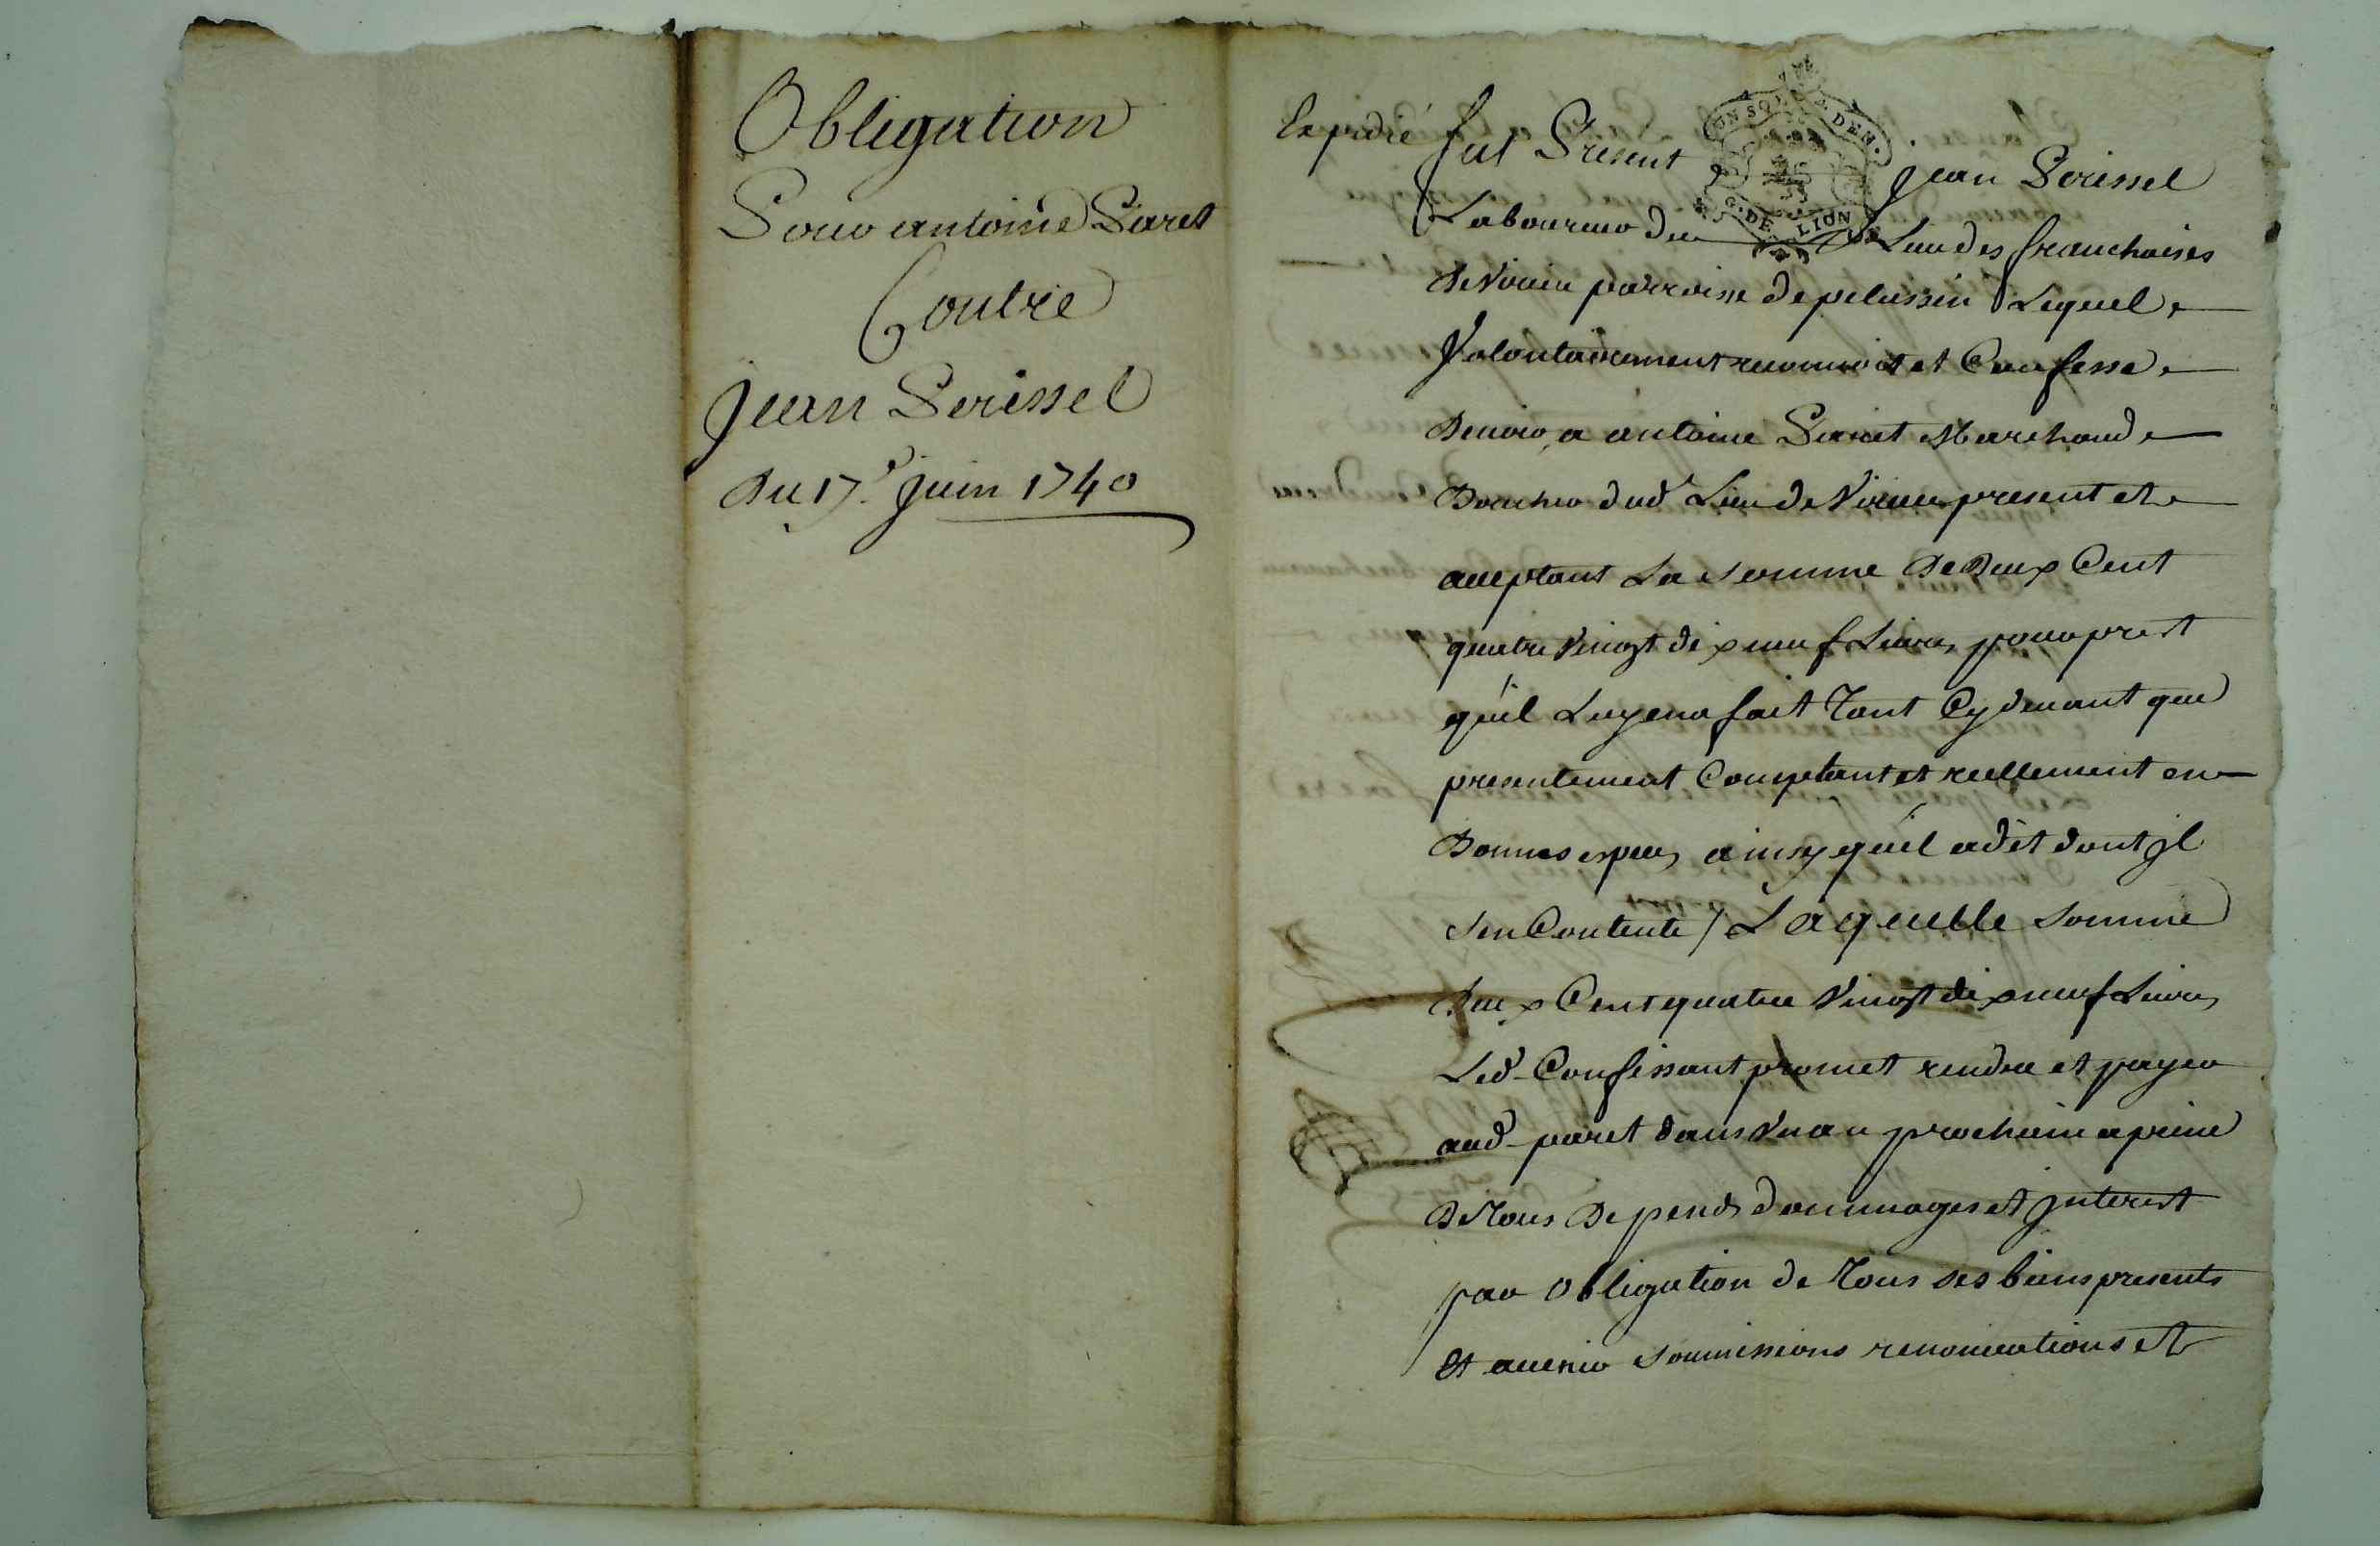 Obligation
Pour antoine Paret
Contre
Jean Perissel
Du 17e Juin 1740
Expedié
fut Present Jean Perissel
Laboureur du Lieu des franchises
de Virieu parroisse de pelussin Lequel
Volontairement reconnoist et Confesse
Devoir a antoine Paret Marchand
Boucher dud Lieu de Virieu present et
acceptant La somme De Deux Cent
quatre Vingt dix neuf Livres pour prest
qu'il Luy en a fait Tant Cy devant que
presentement Comptant et reellement en
Bonnes especes ainsy qu'il a dit dont jl
s'en Contente / Laquelle somme
Deux Cent quatre Vingt dix neuf Livres
Led Confessant promet rendre et payer
aud paret dans Un an prochain a peine
De Tous Depends dommages et jnterest
par obligation de Tous ses biens presents
Et avenir soumissions renonciations et
G. DE LION